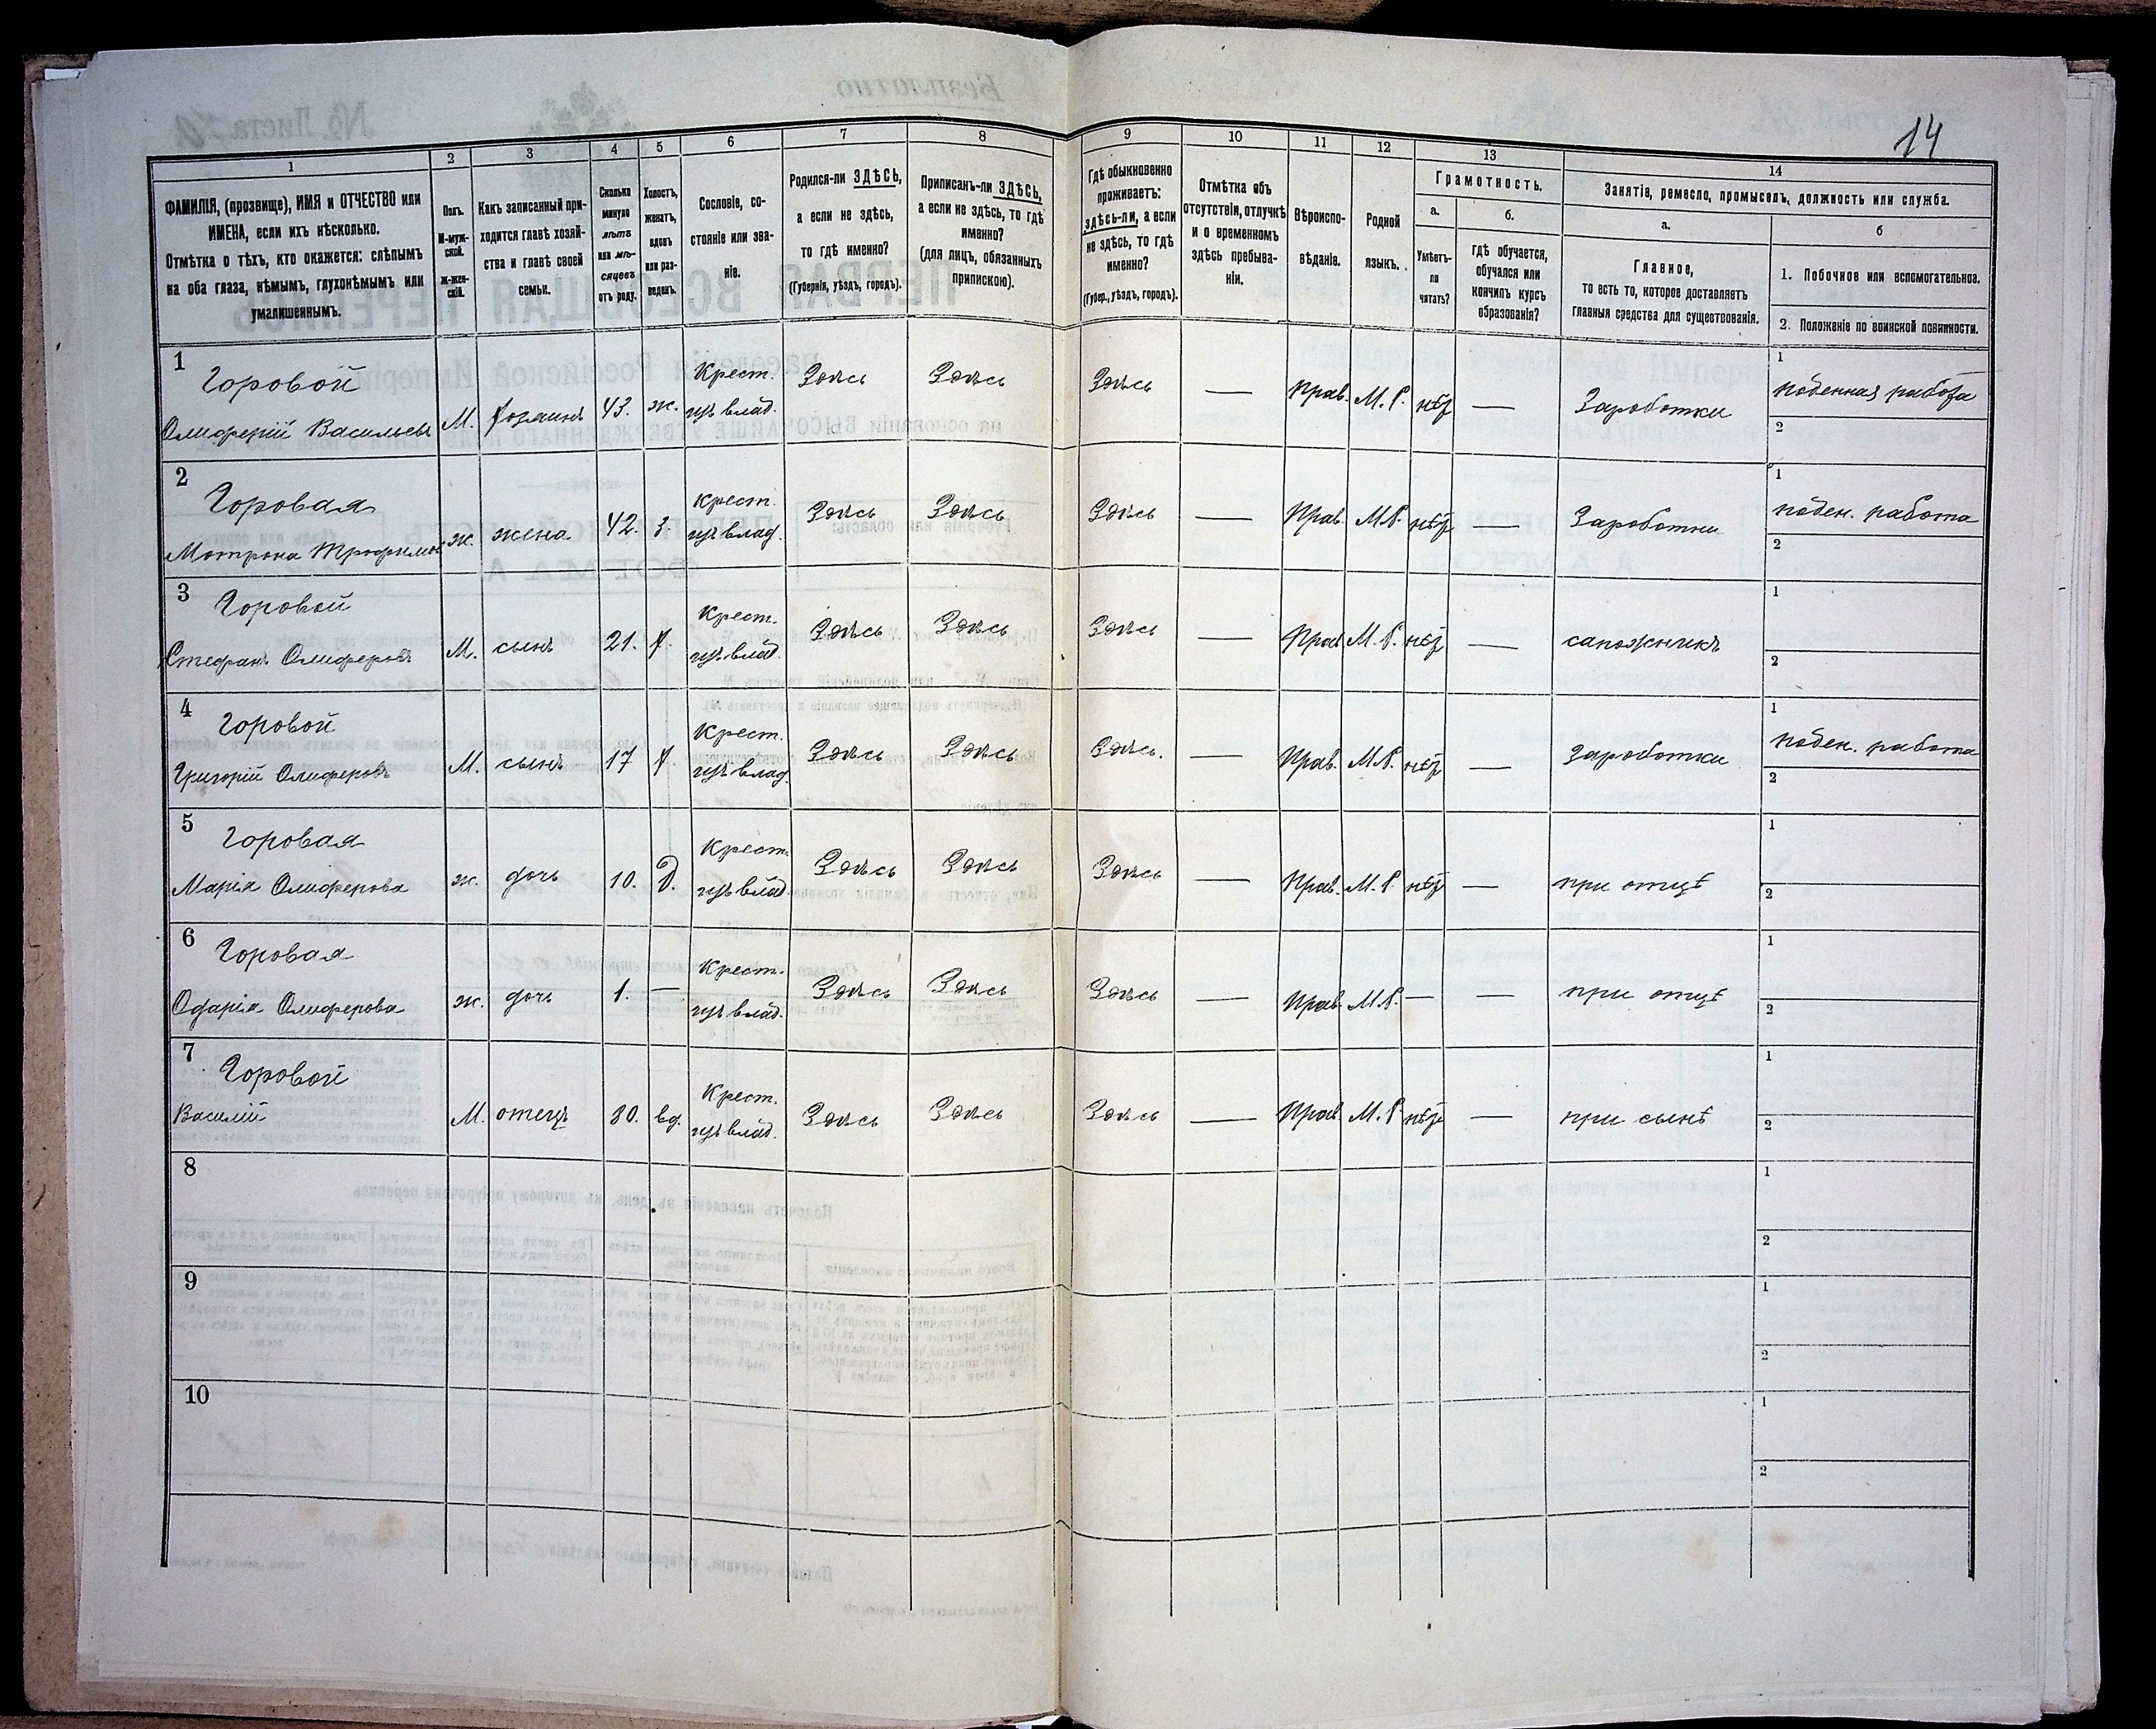 14
1
2
3
4
5
6
7
8
9
10
11
12
13
14
ФАМИЛІЯ, (прозвище), ИМЯ и ОТЧЕСТВО или
ИМЕНА, если ихъ нѣсколько.
Отмѣтка о тѣхъ, кто окажется: слѣпымъ
на оба глаза, нѣмымъ, глухонѣмымъ или
умалишеннымъ.
Полъ.
М-муж-
ской.
Ж-жен-
скій.
Какъ записанный при-
ходится главѣ хозяй-
ства и главѣ своей
семьи.
Сколько
минуло
лѣтъ
или мѣ-
сяцевъ
отъ роду.
Холостъ,
женатъ,
вдовъ
или раз-
веденъ.
Сословіе, со-
стояніе или зва-
ніе.
Родился-ли ЗДѢСЬ,
а если не здѣсь,
то гдѣ именно?
(Губернія, уѣздъ, городъ).
Приписанъ-ли ЗДѢСЬ,
а если не здѣсь, то гдѣ
именно?
(для лицъ, обязанныхъ
припискою).
Гдѣ обыкновенно
проживаетъ:
здѣсь-ли, а если
не здѣсь, то гдѣ
именно?
(Губер., уѣздъ, городъ).
Отмѣтка объ
отсутствіи, отлучкѣ
и о временномъ
здѣсь пребыва-
ніи.
Вѣроиспо-
вѣданіе.
Родной
языкъ.
Грамотность.
а.
Умѣетъ-
ли
читать?
б.
Гдѣ обучается,
обучался или
кончилъ курсъ
образованія?
Занятіе, ремесло, промыселъ, должность или служба.
а.
Главное,
то есть то, которое доставляетъ
главныя средства для существованія.
б
1. Побочное или вспомогательное.
2. Положеніе по воинской повинности.
1
Горовой
Олиферій Васильевъ
М. Хозяинъ 43. ж.
Крест.
изъ влад.
Здѣсь Здѣсь Здѣсь — Прав. М. Р. нѣт — Зароботки
1
поденная работа
2
2
Горовая
Мотрона Трофимов
ж. жена 42. з.
крест.
изъ влад.
Здѣсь Здѣсь Здѣсь — Прав. М.Р. нѣт — Зароботки
1
поден. работа
2
3
Горовой
Стефанъ Олиферовъ
М. сынъ 21. х.
Крест.
изъ влад.
Здѣсь Здѣсь Здѣсь — Прав. М. Р. нѣт — сапожникъ
1
2
4
Горовой
Григорій Олиферовъ
М. сынъ 17 х.
Крест.
изъ влад.
Здѣсь Здѣсь Здѣсь. — Прав. М.Р. нѣт — Зароботки
1
поден. работа
2
5
Горовая
Марія Олиферова
ж. дочь 10. д.
Крест.
изъ влад.
Здѣсь Здѣсь Здѣсь — Прав. М. Р нѣт — при отцѣ
1
2
6
Горовая
Одарія Олиферова
ж. дочь 1. —
Крест.
изъ влад.
Здѣсь Здѣсь Здѣсь — Прав. М.Р. — — при отцѣ
1
2
7
Горовой
Василій
М. отецъ 80. вд.
Крест.
изъ влад.
Здѣсь Здѣсь Здѣсь — Прав. М. Р нѣт — при сынѣ
1
2
8
1
2
9
1
2
10
1
2